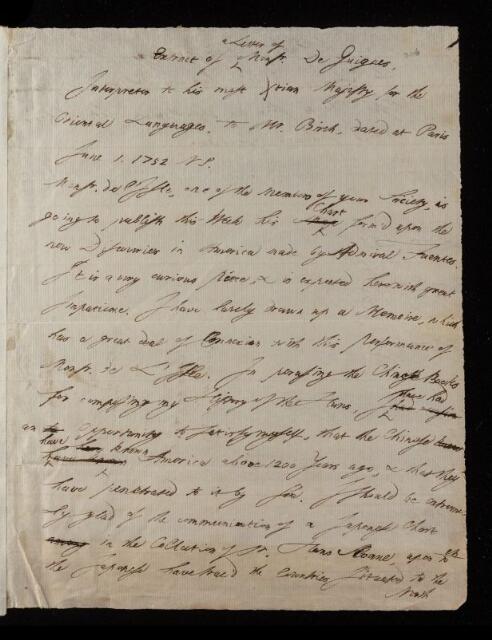 a Letter of
Extract of Monsr. De Guignes,
Interpreter to his most Xtian Majesty for the
Oriental Languages, to Mr. Birch, dated at Paris
June 1. 1752 N.S.
Monsr. de l'Isle, one of the Members of your Society, is
going to publish this Week his Chart form'd upon the
new Discoveries in America made by Admiral Fuentes.
It is a very curious piece, & is expected here with great
impatience. I have lately drawn up a Memoire, which
has a great deal of Connexion with this Performance of
Monsr. de L'Isle. In perusing the Chinese Books
for compiling my History of the Huns, I have had
an opportunity to satisfy myself, that the Chinese
have known America above 1200 Years ago, & that they
have penetrated to it by Sea. I should be extreme-
ly glad of the communication of a Japonese Chart
in the Collection of Sr. Hans Sloane, upon wch
the Japonese have trac'd the Countries situated to the
North